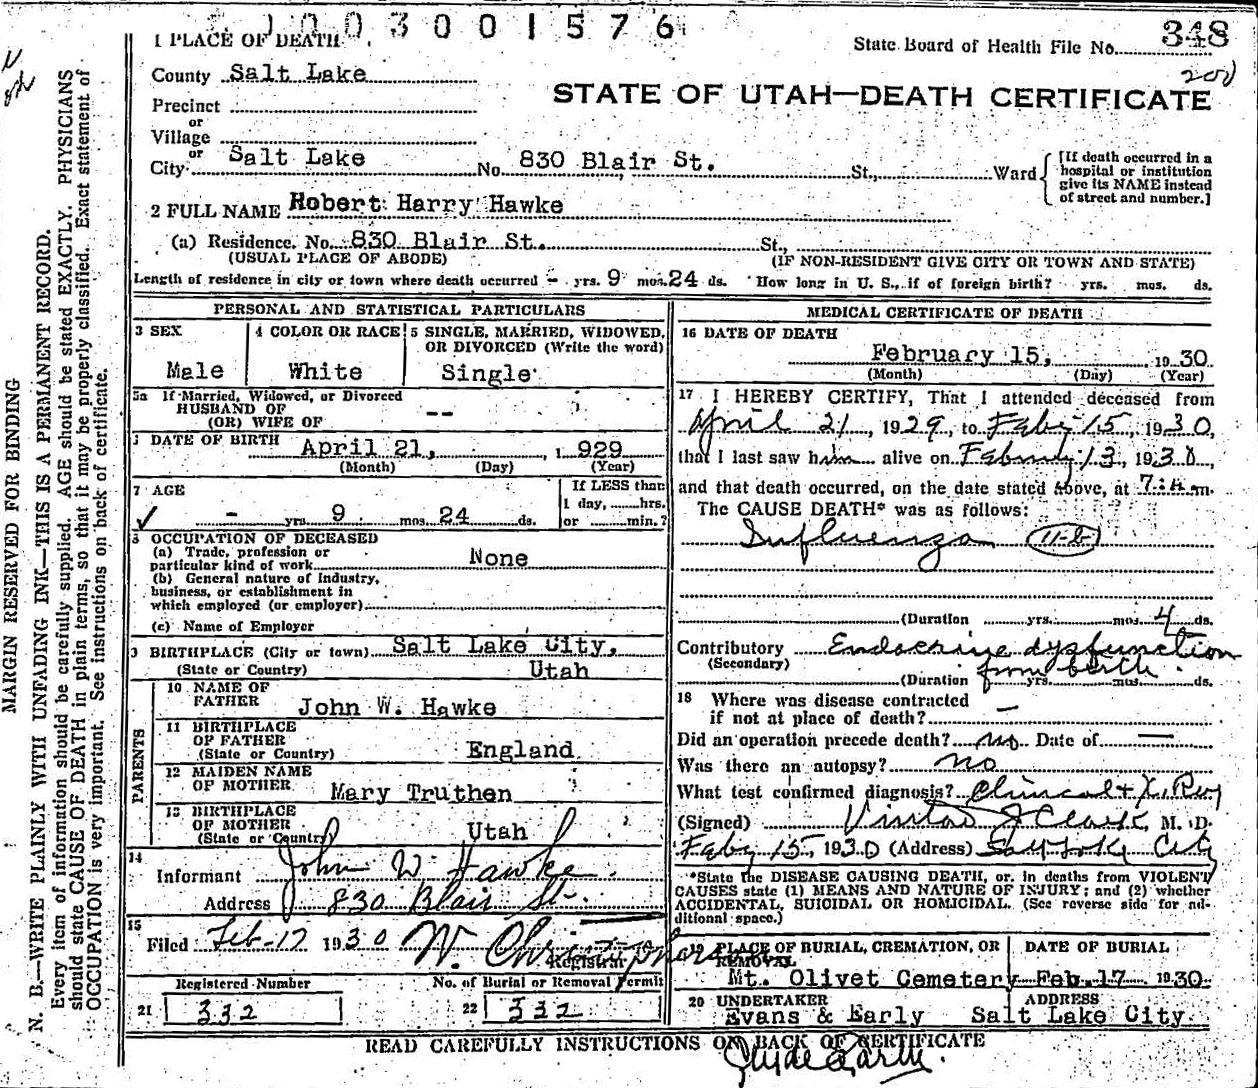 1003001576
348
1 PLACE OF DEATH
State Board of Health File No.
200
County Salt Lake
STATE OF UTAH—DEATH CERTIFICATE
Precinct
or
Village
or
City Salt Lake No. 830 Blair St. St., Ward
[If death occurred in a
hospital or institution
give its NAME instead
of street and number.]
2 FULL NAME Robert Harry Hawke
(a) Residence. No. 830 Blair St. St.,
(USUAL PLACE OF ABODE) (IF NON-RESIDENT GIVE CITY OR TOWN AND STATE)
Length of residence in city or town where death occurred - yrs. 9 mos. 24 ds. How long in U. S., if of foreign birth? yrs. mos. ds.
PERSONAL AND STATISTICAL PARTICULARS
3 SEX
Male
4 COLOR OR RACE
White
5 SINGLE, MARRIED, WIDOWED,
OR DIVORCED (Write the word)
Single
5a If Married, Widowed, or Divorced
HUSBAND OF
(OR) WIFE OF --
DATE OF BIRTH April 21, 1 929
(Month) (Day) (Year)
7 AGE
- yrs. 9 mos. 24 ds.
If LESS than
1 day, hrs.
or min.?
8 OCCUPATION OF DECEASED
(a) Trade, profession or
particular kind of work None
(b) General nature of industry,
business, or establishment in
which employed (or employer)
(c) Name of Employer
9 BIRTHPLACE (City or town) Salt Lake City,
(State or Country) Utah
PARENTS
10 NAME OF
FATHER John W. Hawke
11 BIRTHPLACE
OF FATHER
(State or Country) England
12 MAIDEN NAME
OF MOTHER Mary Truthen
13 BIRTHPLACE
OF MOTHER
(State or Country) Utah
14
Informant John W Hawke
Address 830 Blair St.
15
Filed Feb-17 1930 W. Christopherson
Registrar
Registered Number
21 332
No. of Burial or Removal Permit
22 332
MEDICAL CERTIFICATE OF DEATH
16 DATE OF DEATH
February 15, 1930
(Month) (Day) (Year)
17 I HEREBY CERTIFY, That I attended deceased from
April 21, 1929, to Feby 15, 1930,
that I last saw him alive on 13, 1930,
and that death occurred, on the date stated above, at 7: a.m.
The CAUSE DEATH* was as follows:
Influenza 11-b
(Duration yrs. mos. 4 ds.
Contributory Endocrine dysfunction
(Secondary) from birth
(Duration yrs. mos. ds.
18 Where was disease contracted
if not at place of death? —
Did an operation precede death? no Date of —
Was there an autopsy? no
What test confirmed diagnosis? Clinical + X. Ray
(Signed) Clark, M. D.
Feby 15, 1930 (Address) Salt Lake City
*State the DISEASE CAUSING DEATH, or, in deaths from VIOLENT
CAUSES state (1) MEANS AND NATURE OF INJURY; and (2) whether
ACCIDENTAL, SUICIDAL OR HOMICIDAL. (See reverse side for ad-
ditional space.)
19 PLACE OF BURIAL, CREMATION, OR
REMOVAL
DATE OF BURIAL
Mt. Olivet Cemetery Feb. 17 1930
20 UNDERTAKER ADDRESS
Evans & Early Salt Lake City.
READ CAREFULLY INSTRUCTIONS ON BACK OF CERTIFICATE
MARGIN RESERVED FOR BINDING
N. B.—WRITE PLAINLY WITH UNFADING INK—THIS IS A PERMANENT RECORD.
Every item of information should be carefully supplied. AGE should be stated EXACTLY. PHYSICIANS
should state CAUSE OF DEATH in plain terms, so that it may be properly classified. Exact statement of
OCCUPATION is very important. See instructions on back of certificate.